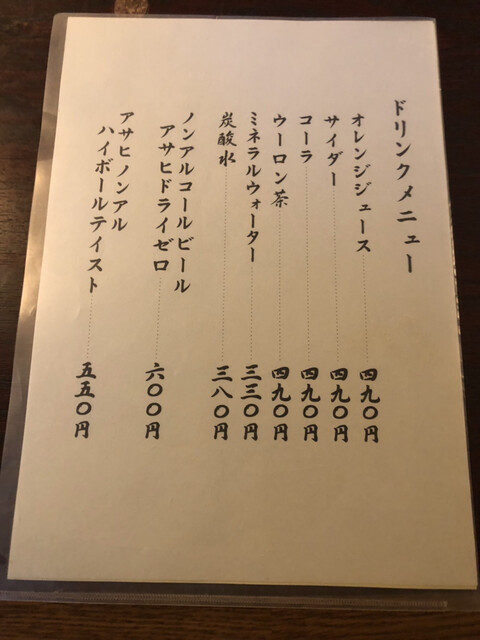 ドリンクメニュー
オレンジジュース………四九〇円
サイダー………四九〇円
コーラ………四九〇円
ウーロン茶………四九〇円
ミネラルウォーター………三三〇円
炭酸水………三八〇円
ノンアルコールビール
アサヒドライゼロ………六〇〇円
アサヒノンアル
ハイボールテイスト………五五〇円